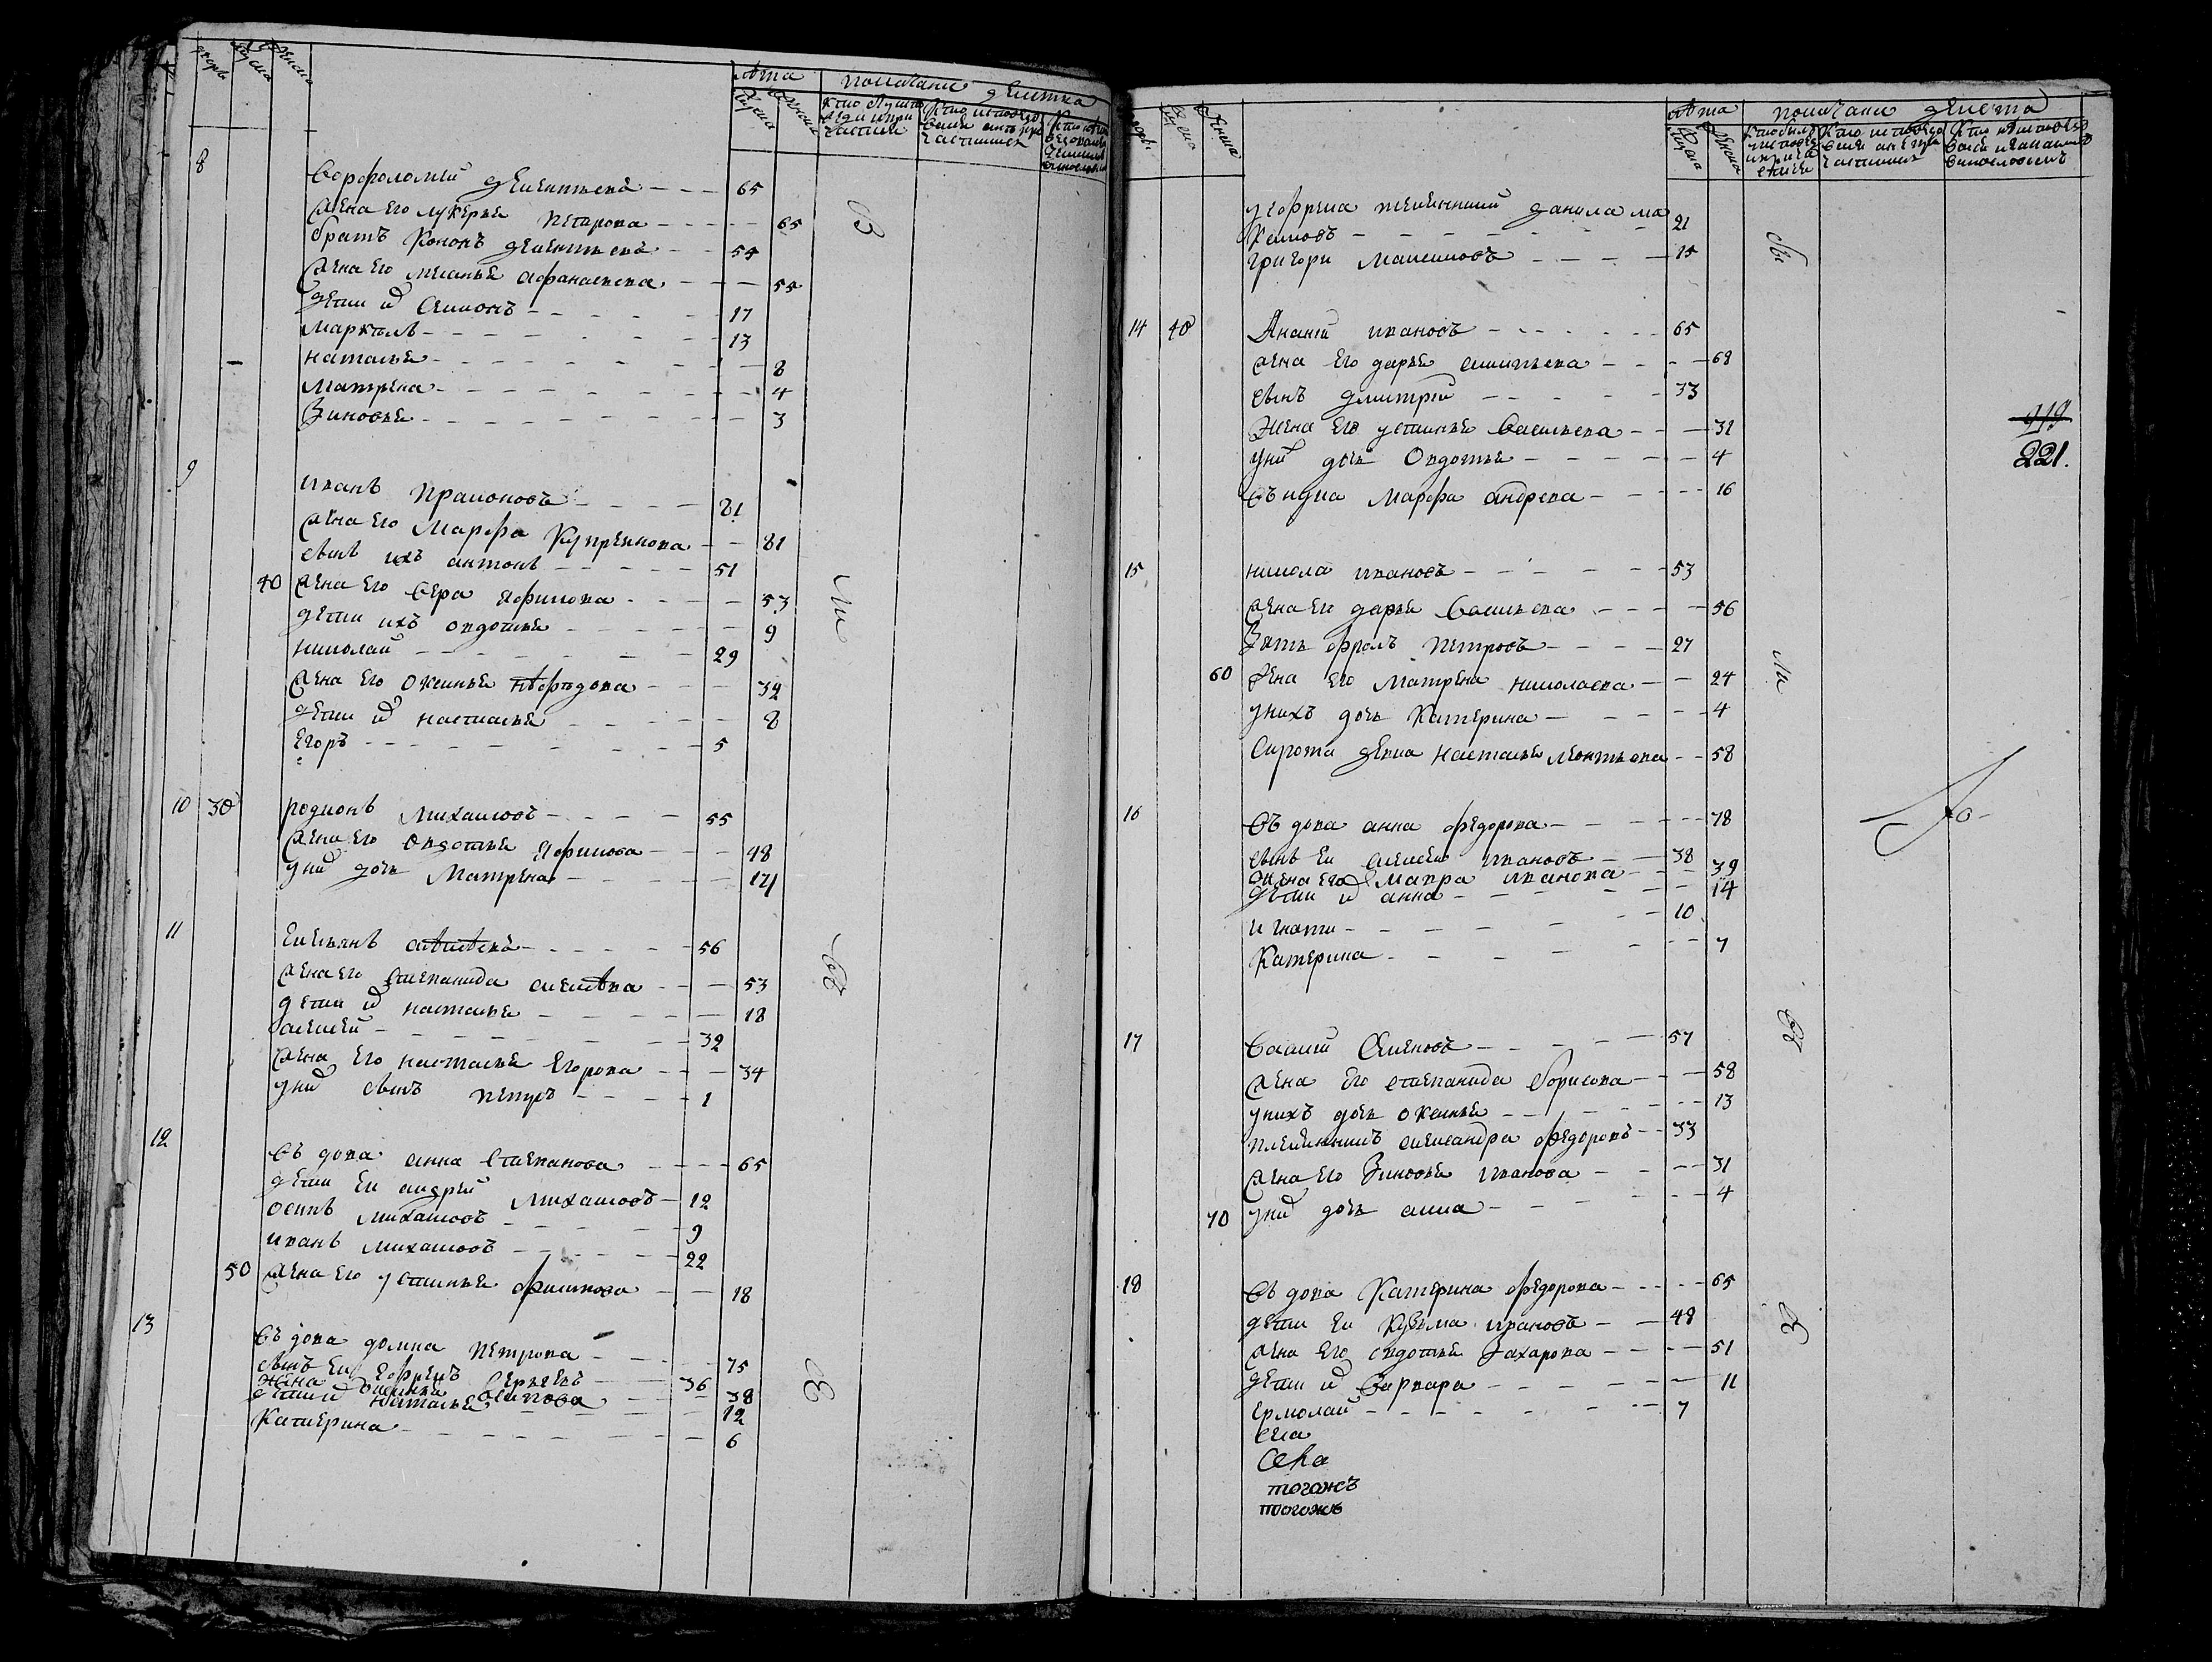 Лѣта
8
Ворфоломѣй деменьтьевъ - - - 65
жена его лукерья Петрова - - - - 65
братъ Кононъ деменьтьевъ - - 54
жена его меланья Афанасьева - - - 55
дети их Симонъ - - - - - 17
Маркелъ - - - - - - 13
наталья - - - - - - 8
Матрена - - - - - - 4
Зиновья - - - - - - 3
9
иванъ Прамоновъ - - - - 81
жена его Марфа Купреянова - - 81
сынъ ихъ антонъ - - - - - 51
40 жена его Вера Ефимова - - - 53
дети ихъ овдотья - - - - - 9
николай - - - - - - 29
жена его Оксинья нефедова - - - 32
дети их настасья - - - - - 8
Егоръ - - - - - - - 5
10 30 родионъ Михаиловъ - - - - 55
жена его Овдотья Ефимова - - - 48
у них дочь Матрена - - - - - 17
11
Емельянъ - - - - - 56
жена его Степанида - - - 53
дети их настасья - - - - - 18
алексей - - - - - - 32
жена его настасья Егорова - - - 34
у них сынъ петръ - - - - 1
12
Въдова анна Степанова - - - - 65
дети ей андрей Михаиловъ - 12
осипъ Михаиловъ - - - - - 9
иванъ михаиловъ - - - - - 22
50 жена его устинья филипова - - 18
13
Въдова домна Петрова - - - - 75
сынъ ей Ефремъ Сергеевъ - - 36
жена Осипова - - 38
дети их наталья - - - - 12
Катерина - - - - - - 6
Лѣта
у ефрема племянники данила ма
ксимовъ - - - - - - 21
григори Максимовъ - - - - 15
14 40 Ананий ивановъ - - - - - 65
жена его дарья - - - 68
сынъ дмитрий - - - - - 33
Жена его устинья Васильева - - - 31
у них дочь Овдотья - - - - - 4
Марфа андреева - - - - 16
919
221.
15
никола ивановъ - - - - - 53
жена его дарья Васильева - - - - 56
Зять фролъ Петровъ - - - - 27
60 жена его Матрена николаева - - 24
у нихъ дочь Катерина - - - - 4
Сирота девка настасья леонтьева - - 58
16
Въдова анна федорова - - - - - 78
сынъ ей алексей ивановъ - - 38
жена его Мавра иванова - - - 39
дети их анна - - - - - - 14
игнати - - - - - - 10
Катерина - - - - - - 7
17
Василий Семеновъ - - - - - 57
жена его степанида борисова - - - 58
у нихъ дочь оксинья - - - - - 13
племянникъ александра федоровъ - - 33
жена его Зиновья иванова - - - - 31
70 у них дочь анна - - - - - 4
18
Въдова Катерина федорова - - - - 65
дети ей Кузьма ивановъ - - 48
жена его овдотья Захарова - - - - 51
дети их Варвара - - - - - - 11
ермолай - - - - - - 7
села
Села
тогожъ
тогожъ